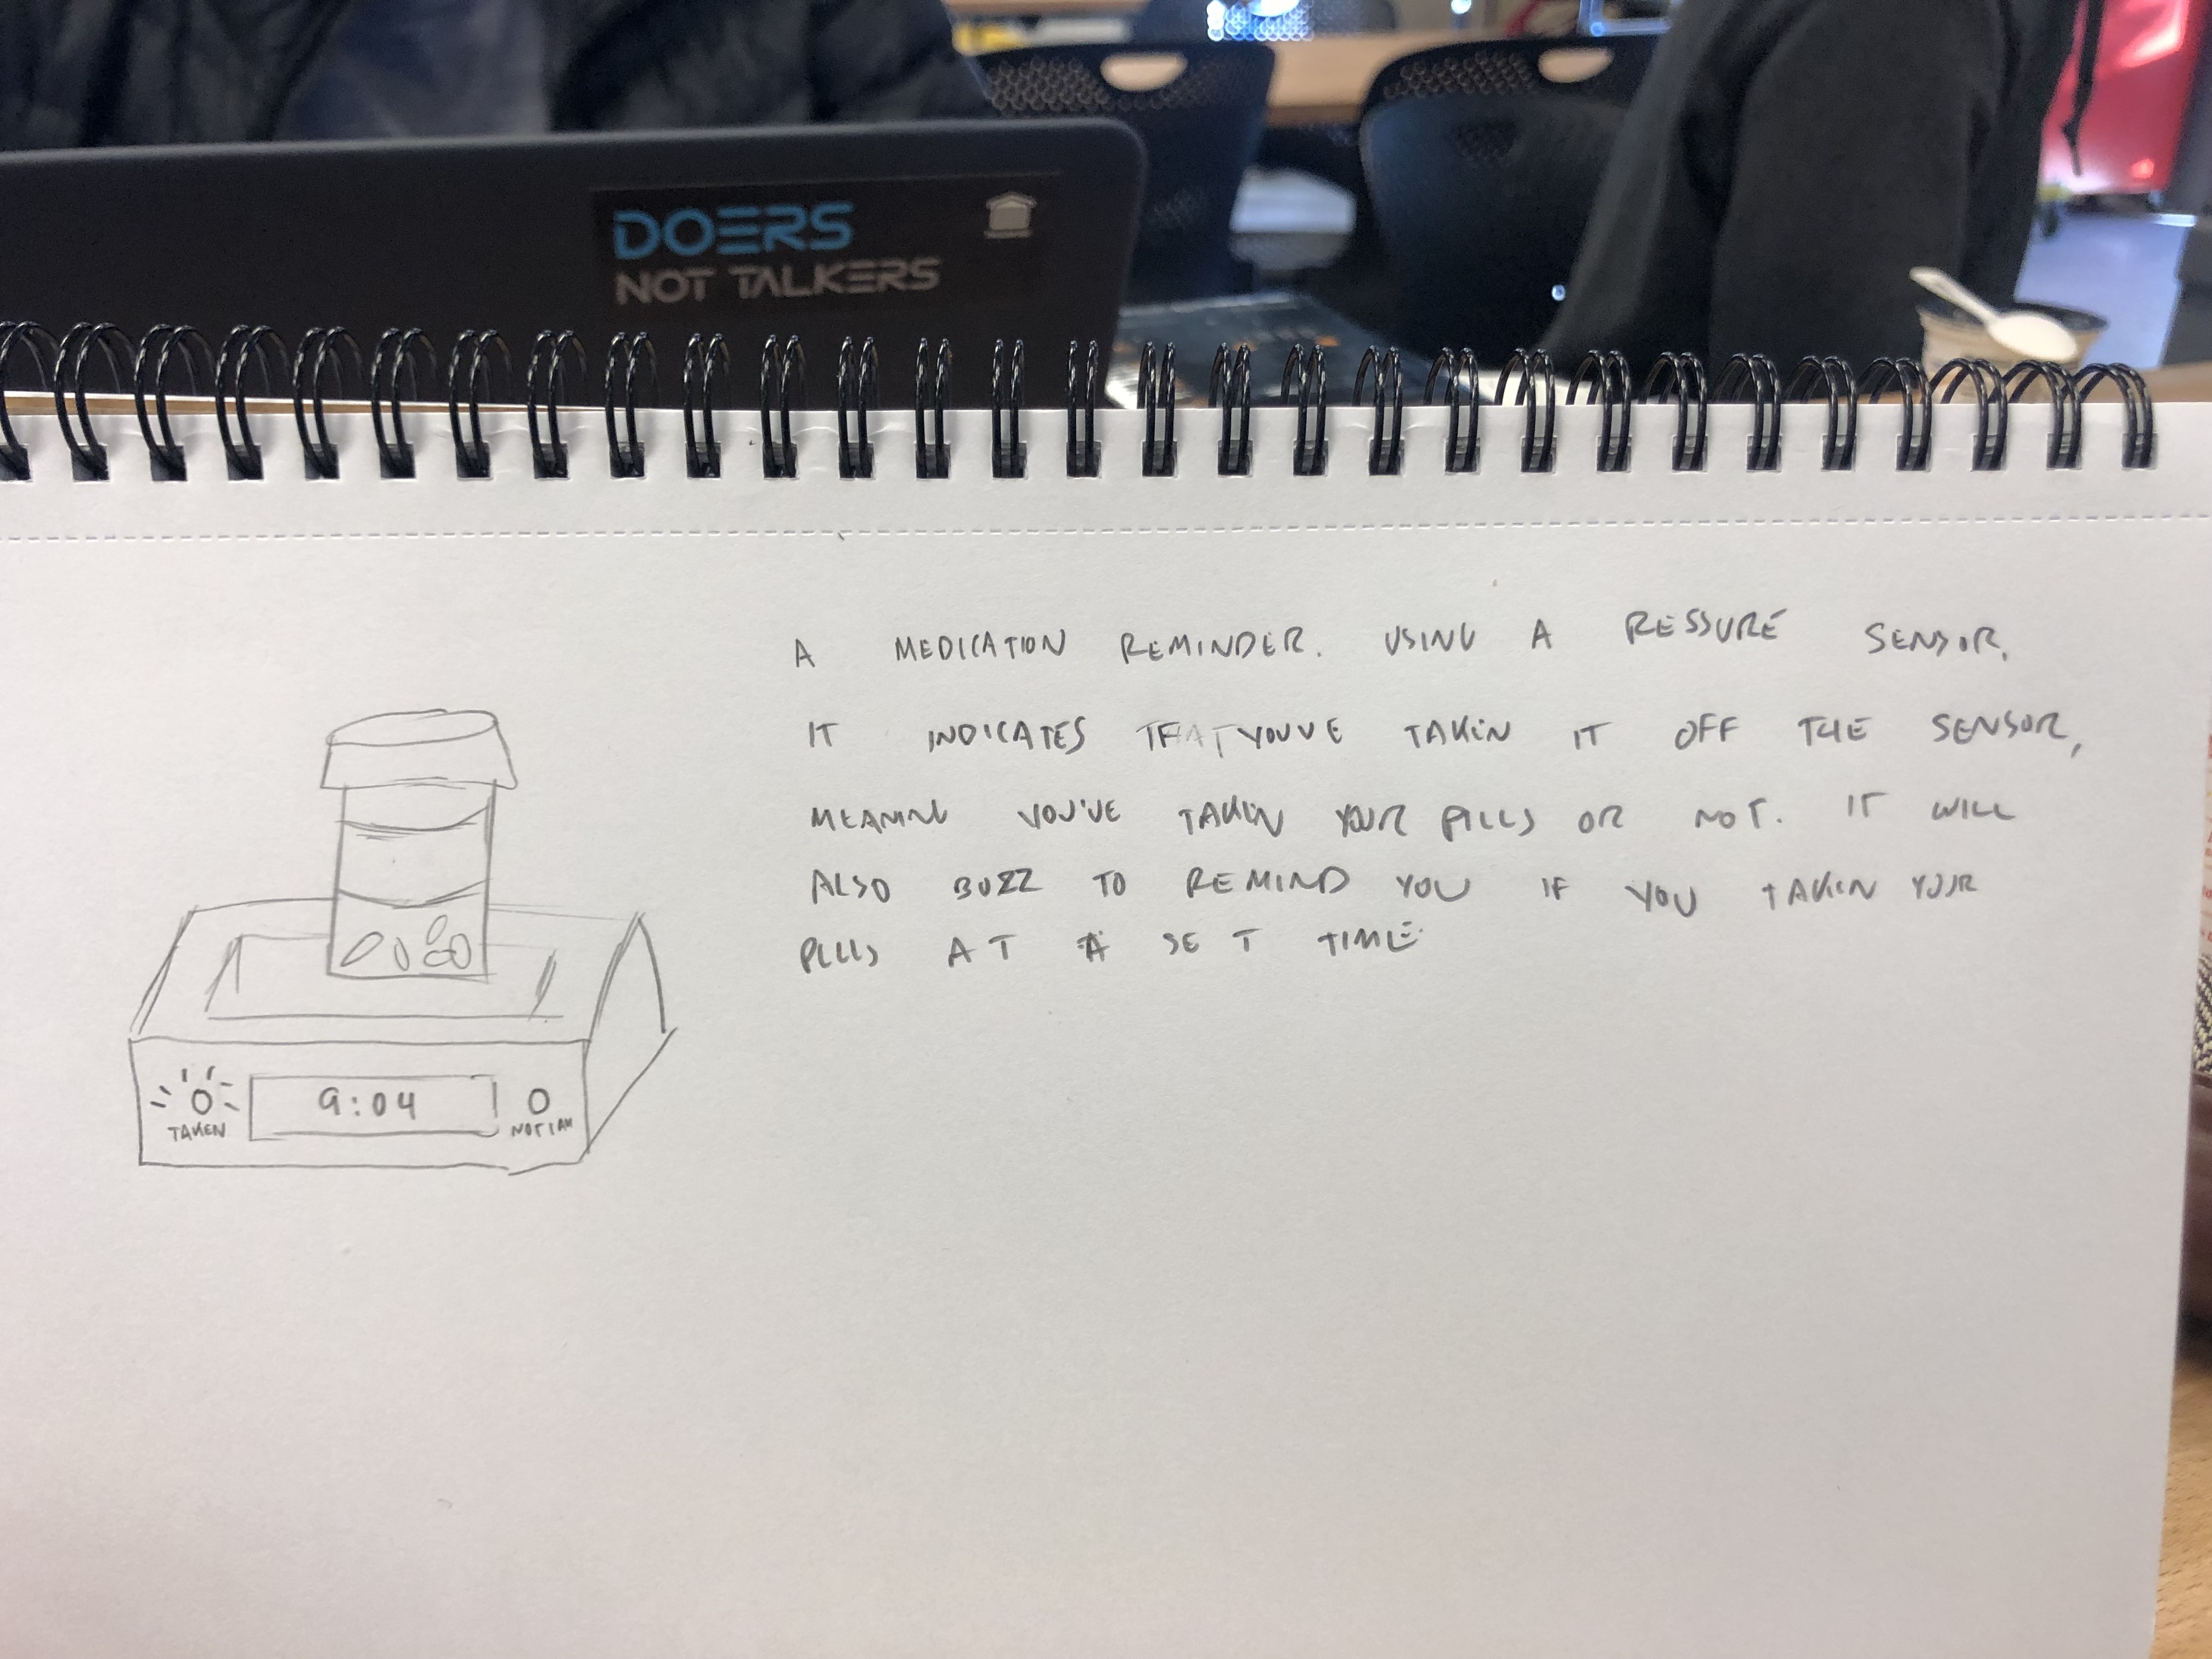 DOERS
NOT TALKERS
A MEDICATION REMINDER. USING A RESSURE SENSOR.
IT INDICATES THAT YOUVE TAKEN IT OFF THE SENSOR,
MEANING YOU'VE TAKEN YOUR PILLS OR NOT. IT WILL
ALSO BUZZ TO REMIND YOU IF YOU TAKEN YOUR
PILLS AT A SET TIME
9:04
TAKEN
NOT